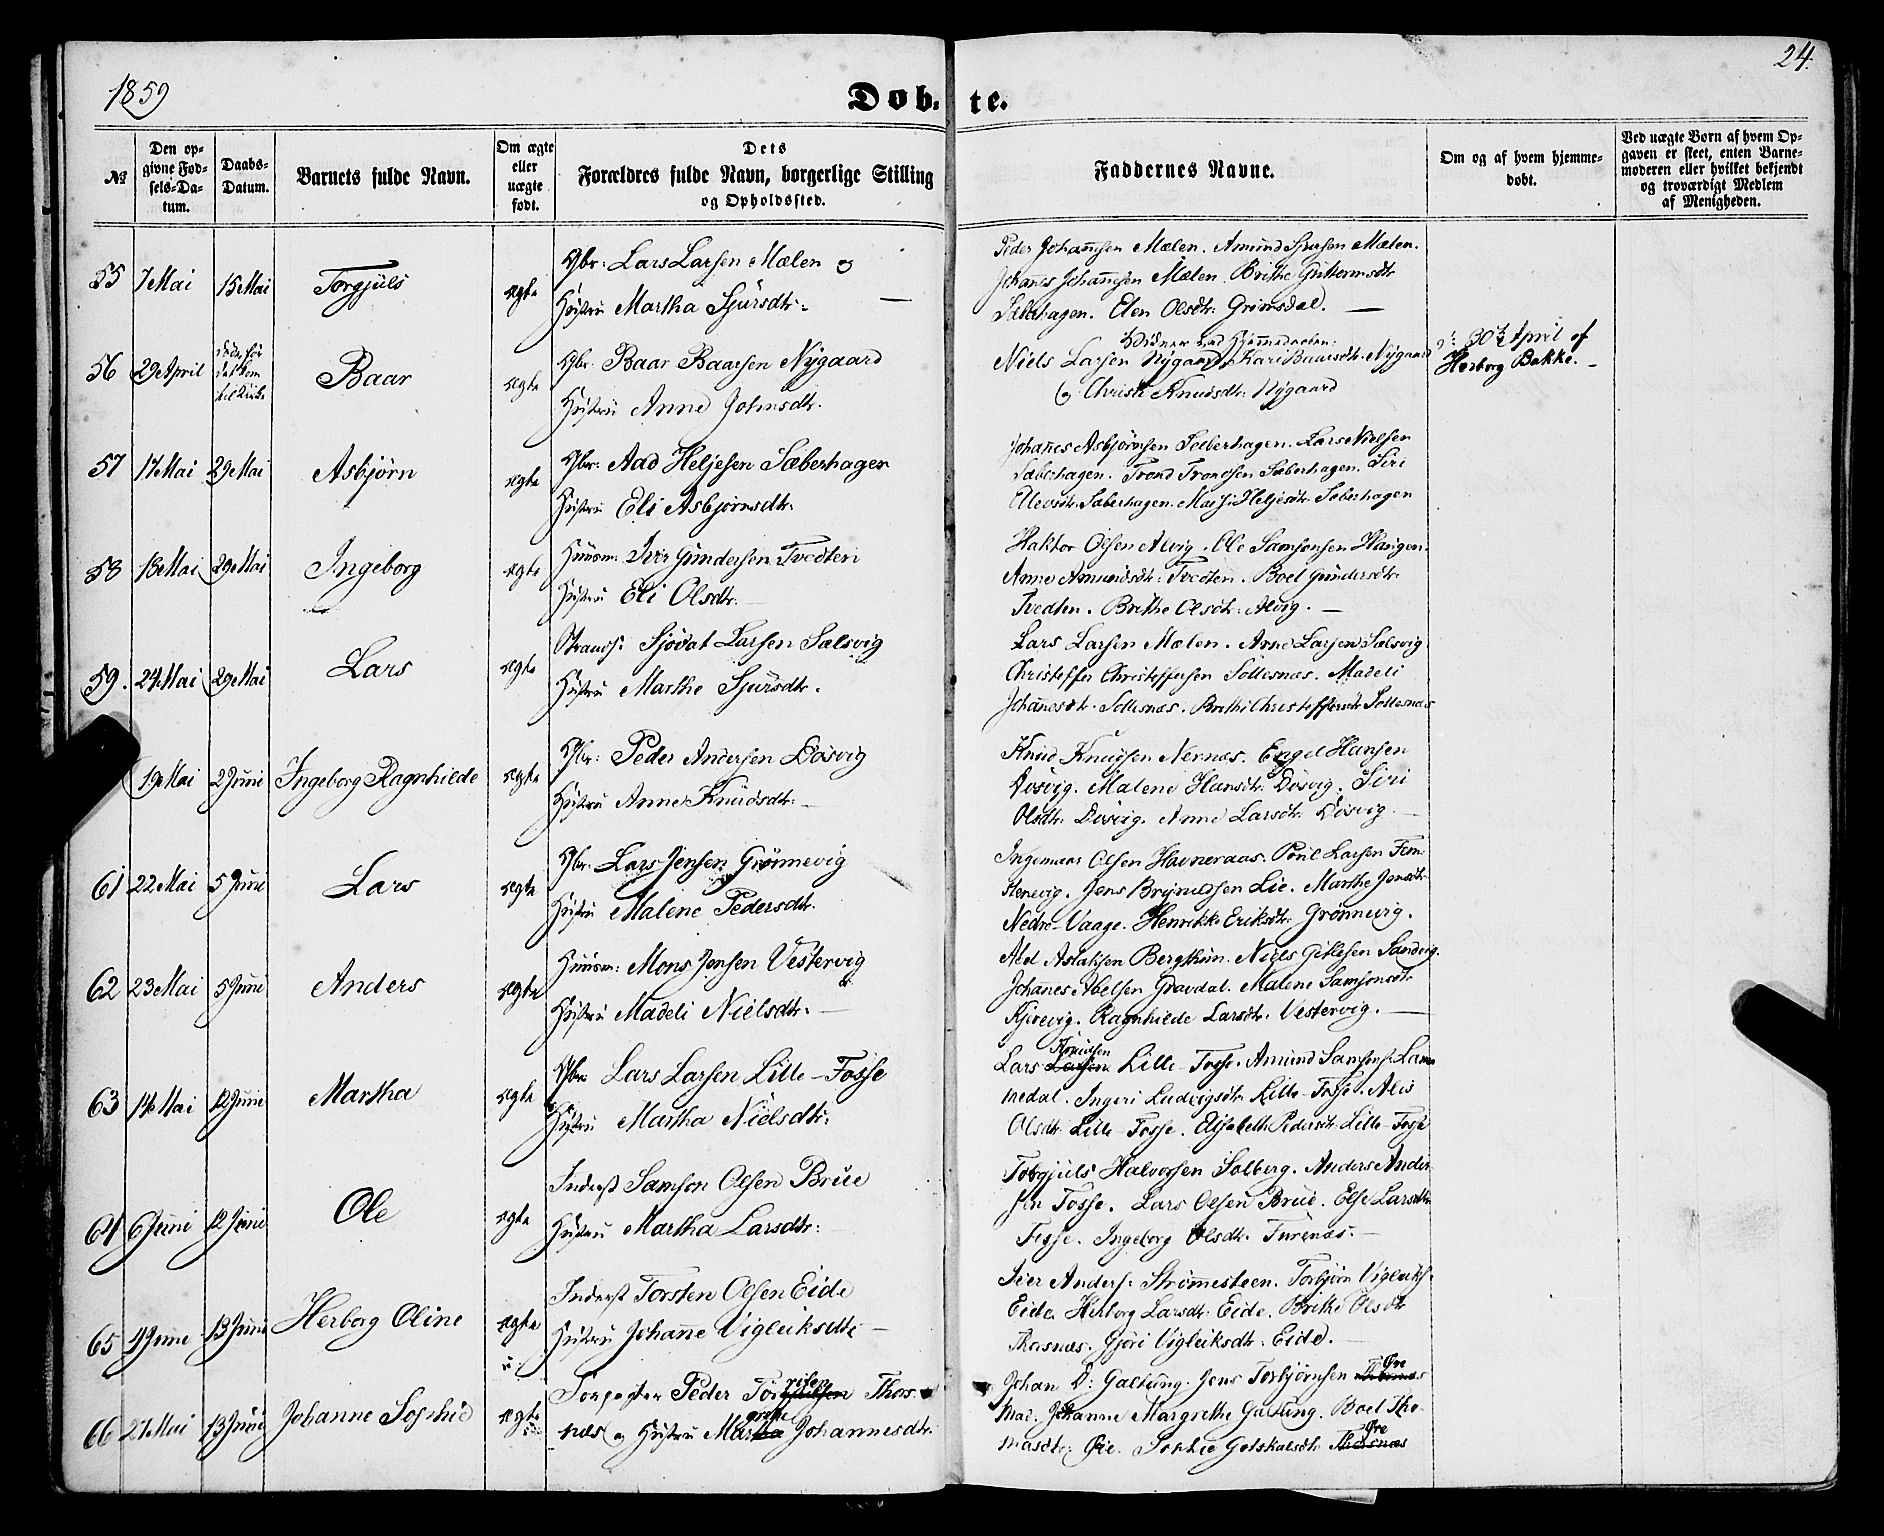 1859
Døb- te.
24.
No
Den opgivne Fødsels-Datum.
Daabs-Datum.
Barnets fulde Navn.
Om ægte eller uægte født.
Dets Forældres fulde Navn, borgerlige Stilling og Opholdssted.
Faddernes Navne.
Om og af hvem hjemmedøbt.
Ved uægte Børn af hvem Opgaven er skeet, enten Barnemoderen eller hvilket bekjendt og troværdigt Medlem af Menigheden.
55 7 Mai 15 Mai Torgjuls ægte Gbr: Lars Larsen Mælen og
Hustru Martha Sjursdtr:
Peder Johannesen Mælen. Amund Sjursen Mælen.
Johanes Johannesen Mælen. Brithe Guttormsdtr
Sæberhagen. Elen Olsdtr: Grimsdal.
56 29 April døde før det kom til Kirke Baar ægte Gbr. Baar Baarsen Nygaard
Hustru Anne Johnsdtr.
Vidner ved Hjemmedaaben:
Niels Larsen Nygaard, Kari Baarsdtr: Nygaard
og Christi Knudsdtr: Nygaard
30te April af
Herborg Bakke.
57 17 Mai 29 Mai Asbjørn ægte Gbr: Aad Heljesen Sæberhagen
Hustru Eli Asbjørnsdtr.
Johanes Asbjørnsen Sæberhagen. Lars Nielsen
Sæberhagen. Trond Trondsen Sæberhagen. Siri
Sæberhagen. Heljesdtr Sæberhagen
58 18 Mai 29 Mai Ingeborg ægte Huusm: Iver Gundersen Tvedten
Hustru Eli Olsdtr.
Haktor Olsen Alvig. Ole Samsonsen Haugen.
Anne Amundsdtr: Tvedten. Boel Gundersdtr:
Tvedten. Brithe Olsdtr: Alvig.
59. 24 Mai 29 Mai Lars ægte Strands: Sjovat Larsen Salsvig
Hustru Marthe Sjursdtr.
Lars Larsen Mælen. Arne Larsen Salsvig
Christoffer Christoffersen Sollesnæs. Madeli
Johanesdtr. Sollesnæs. Brithe Christoffersdtr Sollesnæs
19 Mai 2 Juni Ingeborg Ragnhilde ægte Gbr: Peder Andersen Døsvig
Hustru Anne Knudsdtr:
Knud Knudsen Nernæs. Engel Hansen
Døsvig. Malene Hansdtr: Døsvig. Siri
Olsdtr: Døsvig. Anne Larsdtr: Døsvig.
61 22 Mai 5 Juni Lars ægte Gbr: Lars Jensen Grønnevig
Hustru Malene Pedersdtr.
Ingemar Olsen Havneraas. Poul Larsen Fem-
stenevig. Jens Brynildsen Lie. Marthe Jonsdtr
Nedre-Vaage. Henrikke Eriksdtr: Grønnevig.
62 23 Mai 5 Juni Anders ægte Huusm: Mons Jensen Vestervig
Hustru Madeli Nielsdtr:
Abel Aslaksen Bergthun. Niels Gitlesen Sandvig.
Johanes Abelsen Gravdal. Malene Samsonsdtr
Kjirevig. Ragnhilde Larsdtr: Vestervig.
63 14 Mai 12 Juni Martha ægte Gbr: Lars Larsen Lille-Fosse
Hustru Martha Nielsdtr:
Knudsen
Lars Larsen Lille-Fosse. Amund Samsons: Lam-
medal. Ingeri Ludvigsdtr: Lille-Fosse. Alis
Olsdtr: Lille-Fosse. Elisabeth Pedersdtr: Lille-Fosse
64 6 Juni 12 Juni Ole ægte Inderst Samson Olsen Brue
Hustru Martha Larsdtr:
Torgjuls Halvorsen Solberg. Anders Ander-
sen Fosse. Lars Olsen Brue. Else Larsdtr
Fosse. Ingeborg Olsdtr. Furenæs.
65 4 Juni 13 Juni Herborg Oline ægte Inderst Torsten Olsen Eide
Hustru Johanne Vigleiksdtr
Seier Anders: Strømesteen. Torbjørn Vigleiks:
Eide. Herborg Larsdtr: Eide. Brithe Olsdtr
Thorsnæs. Gjøri Vigleiksdtr: Eide.
66 27 Mai 13 Juni Johanne Sophie ægte Peder Thors-
næs og Hustru Margrethe Johannesdtr.
Johan D: Galtung. Jens Torbjørnsen Thorsnæs Øre
Mad. Johanne Margrethe Galtung. Boel Tho-
masdtr: Øre. Sophie Gotskalsdtr. Thorsnæs Øre